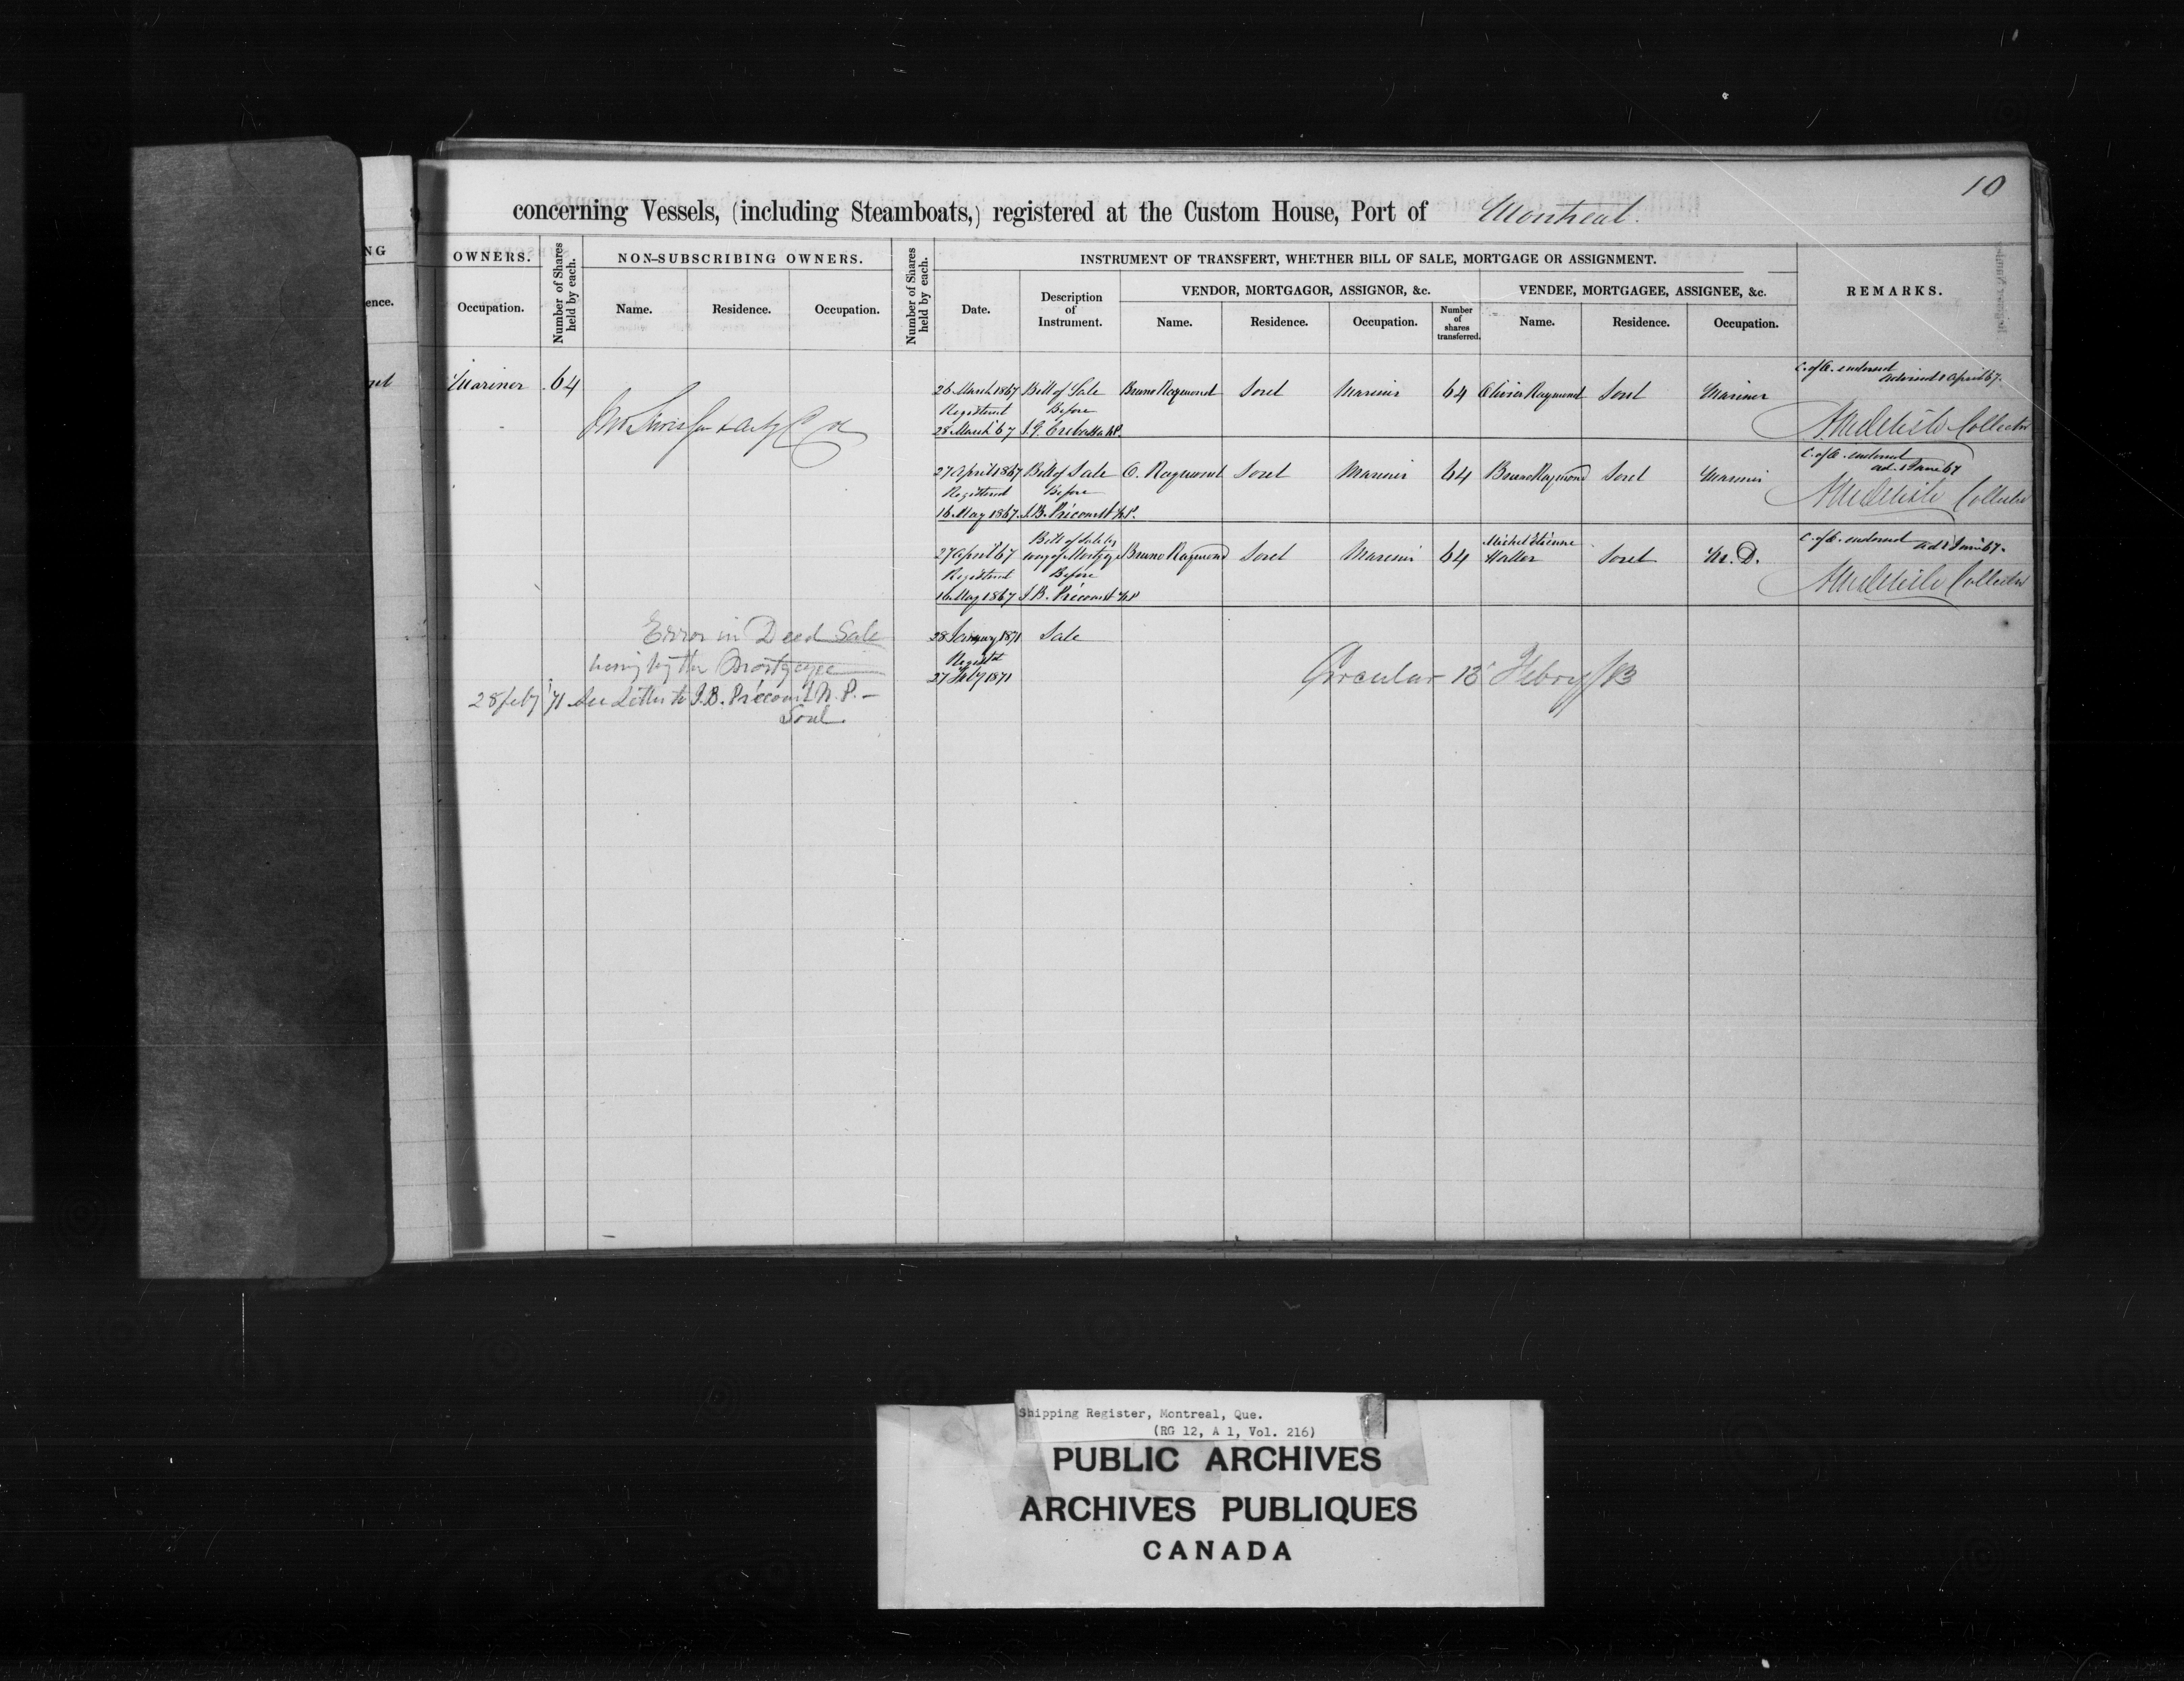 10
concerning Vessels, (including Steamboats,) registered at the Custom House, Port of Montreal.
NG
OWNERS.
Number of Shares held by each.
NON-SUBSCRIBING OWNERS.
Number of Shares held by each.
INSTRUMENT OF TRANSFERT, WHETHER BILL OF SALE, MORTGAGE OR ASSIGNMENT.
REMARKS.
ence.
Occupation.
Name.
Residence.
Occupation.
Date.
Description of Instrument.
VENDOR, MORTGAGOR, ASSIGNOR, &c.
VENDEE, MORTGAGEE, ASSIGNEE, &c.
Name.
Residence.
Occupation.
Number of shares transferred.
Name.
Residence.
Occupation.
Mariner 64
26 March 1867 Bill of Sale Bruno Raymond Sorel Marinier 64 Olivier Raymond Sorel Mariner
Registered Before
28 March 67 J. G. Crebassa N.P.
C. of O. endorsed
advised 1 April 67.
Collector
27 April 1867 Bill of Sale O. Raymond Sorel Marinier 64 Bruno Raymond Sorel Marinier
Registered Before
16 May 1867 J. B. Précourt N.P.
C. of O. endorsed
ad. 1 June 67
Collector
Bill of Sale by
27 April 67 way of Mortgage Bruno Raymond Sorel Marinier 64 Michel Etienne Haller Sorel M. D.
Registered Before
16 May 1867 J. B. Précourt N.P
C. of O. endorsed ad 1 June 67.
Collector
Error in Deed Sale
being by the Mortgagee
28 feby 71 See Letter to J. B. Précourt N. P. -
Sorel
28 January 1871 Sale
Registd
27 Feby 1871
Circular 13 Febry /83
Shipping Register, Montreal, Que.
(RG 12, A 1, Vol. 216)
PUBLIC ARCHIVES
ARCHIVES PUBLIQUES
CANADA